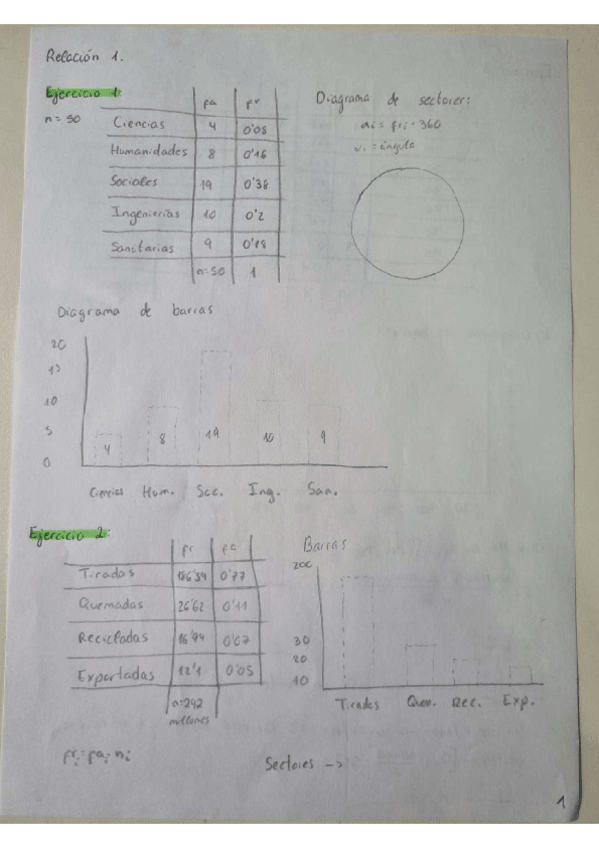 Relación 1.
Ejercicio 1:
n = 50
fa fr
Ciencias 4 0'08
Humanidades 8 0'16
Sociales 19 0'38
Ingenierías 10 0'2
Sanitarias 9 0'18
n=50 1
Diagrama de sectores:
αi = fri · 360
αi = ángulo
Diagrama de barras
20
15
10
5
0
4 8 19 10 9
Ciencias Hum. Soc. Ing. San.
Ejercicio 2:
fr fa
Tiradas 186'34 0'77
Quemadas 26'62 0'11
Recicladas 16'94 0'07
Exportadas 12'1 0'05
n=242
millones
fri = fai · ni
Barras
200
30
20
10
Tirados Quem. Rec. Exp.
Sectores ->
1